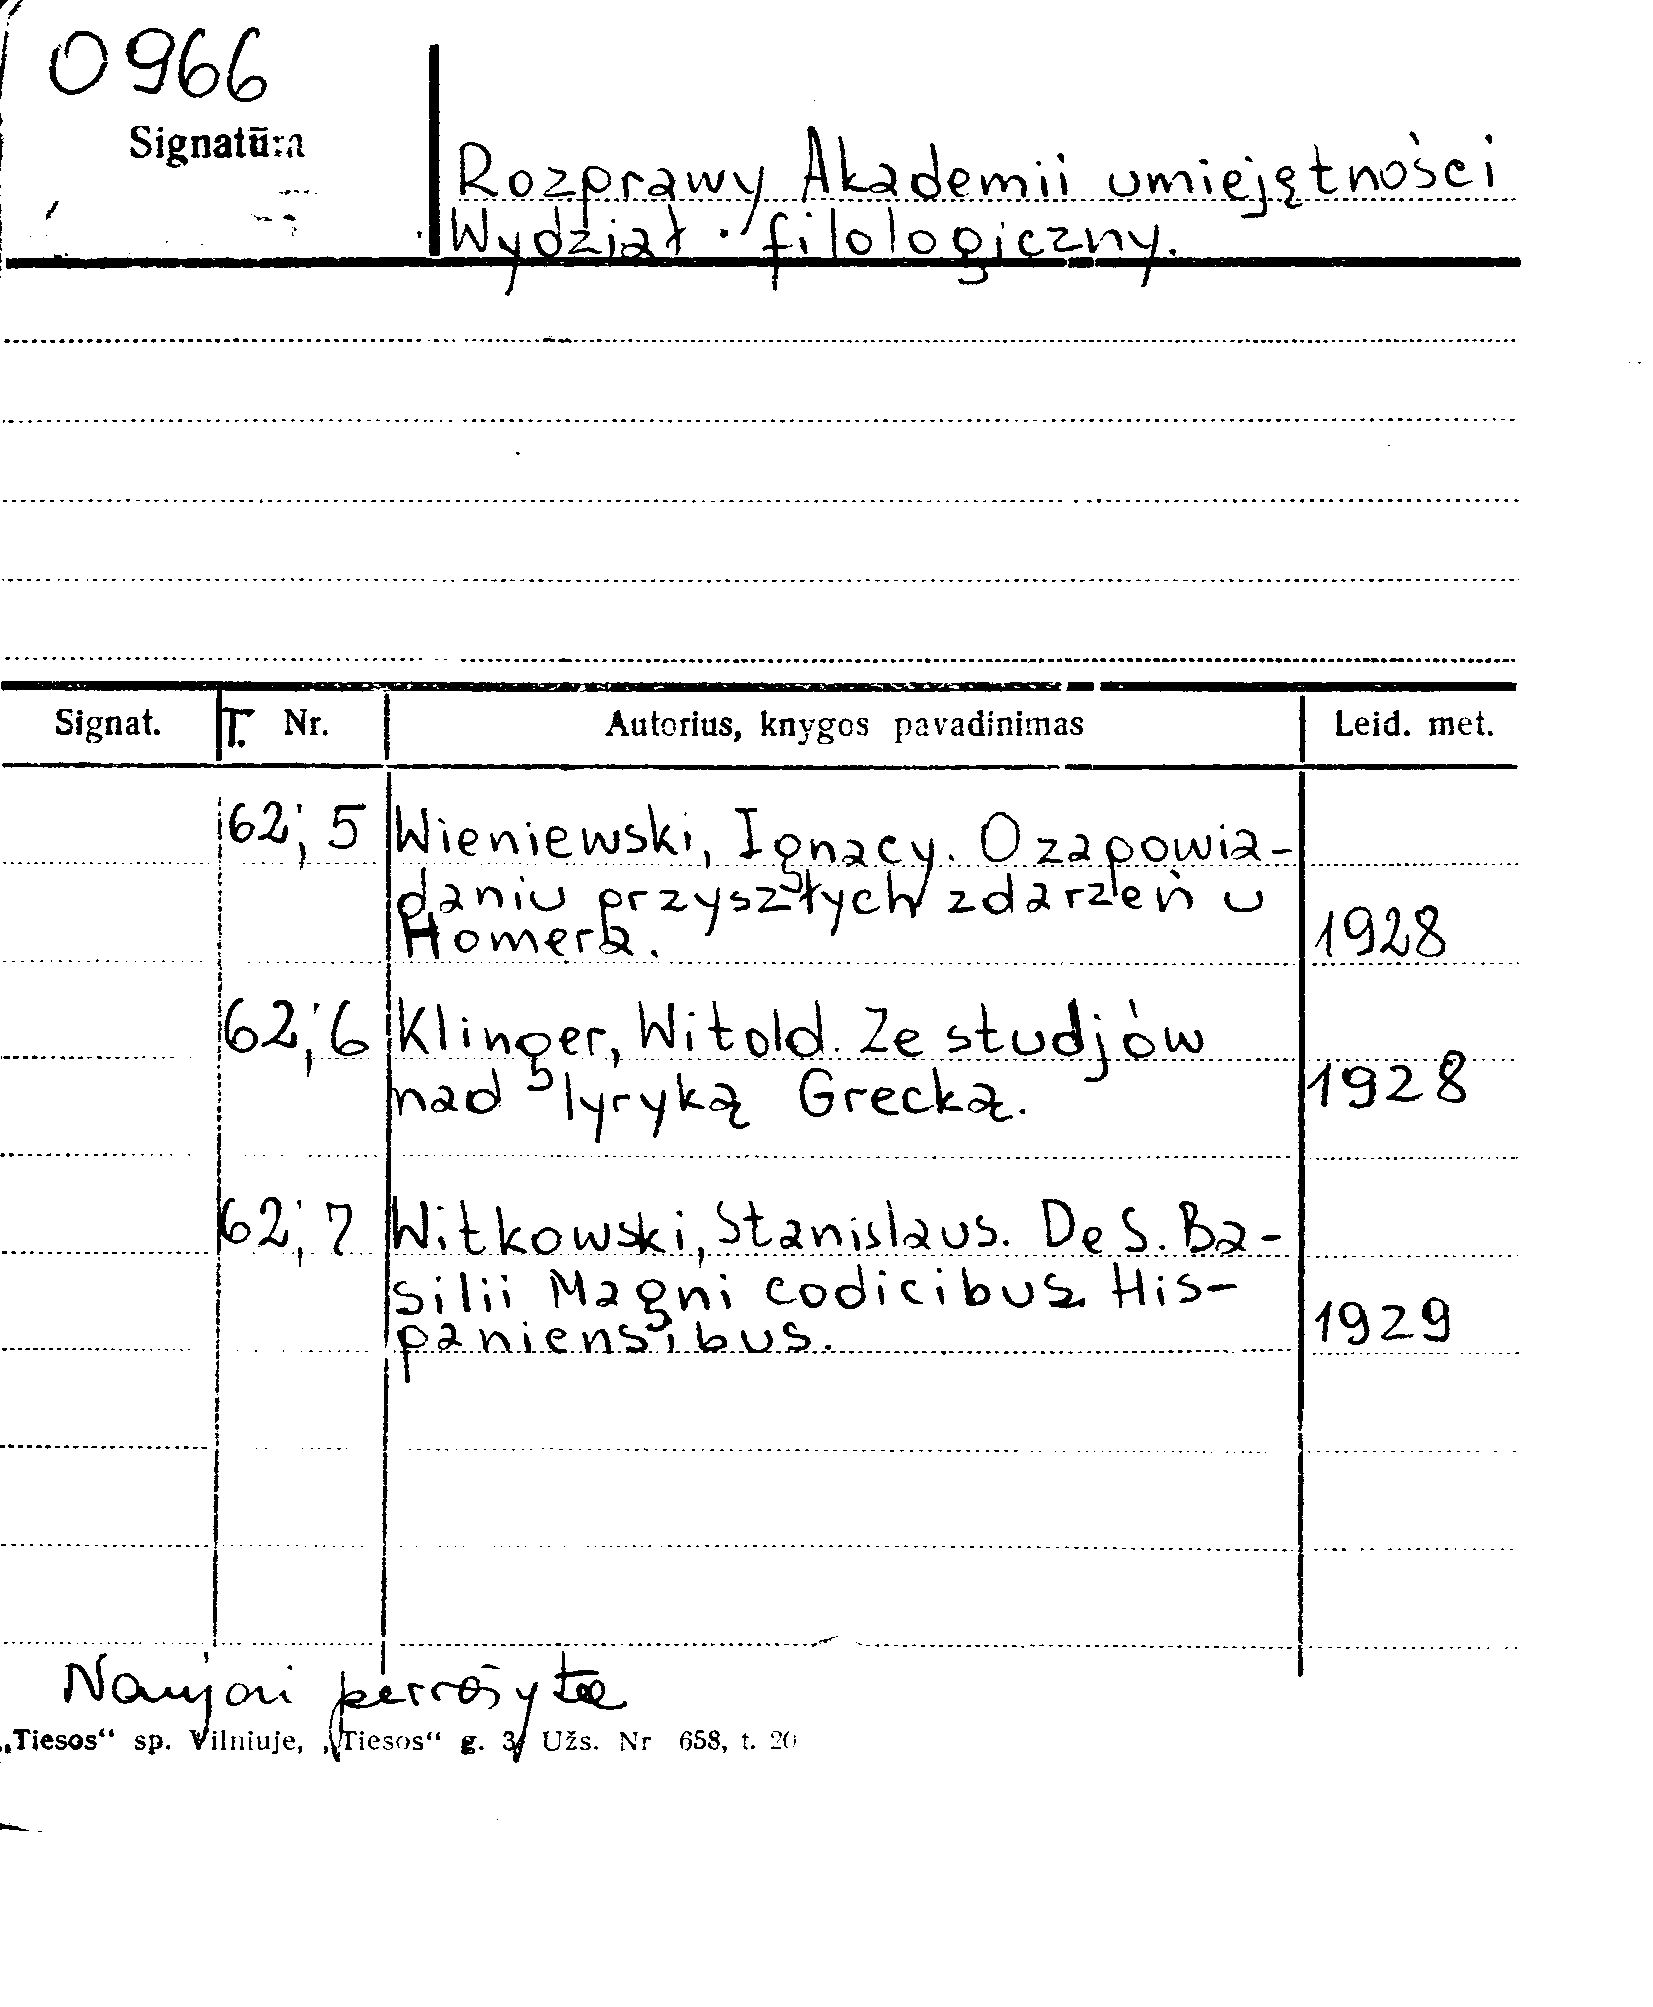 0966
Signatūra
Rozprawy Akademii umiejętności
Wydział filologiczny.
Signat. T. Nr. Autorius, knygos pavadinimas Leid. met.
62; 5 Wieniewski, Ignacy. O zapowia-
daniu przyszłych zdarzeń u
Homera. 1928
62; 6 Klinger, Witold. Ze studjów
nad lyryką Grecką. 1928
62; 7 Witkowski, Stanislaus. De S. Ba-
silii Magni codicibus His-
paniensibus. 1929
Naujai perrašyta
„Tiesos“ sp. Vilniuje, „Tiesos“ g. 3, Užs. Nr 658, t. 20